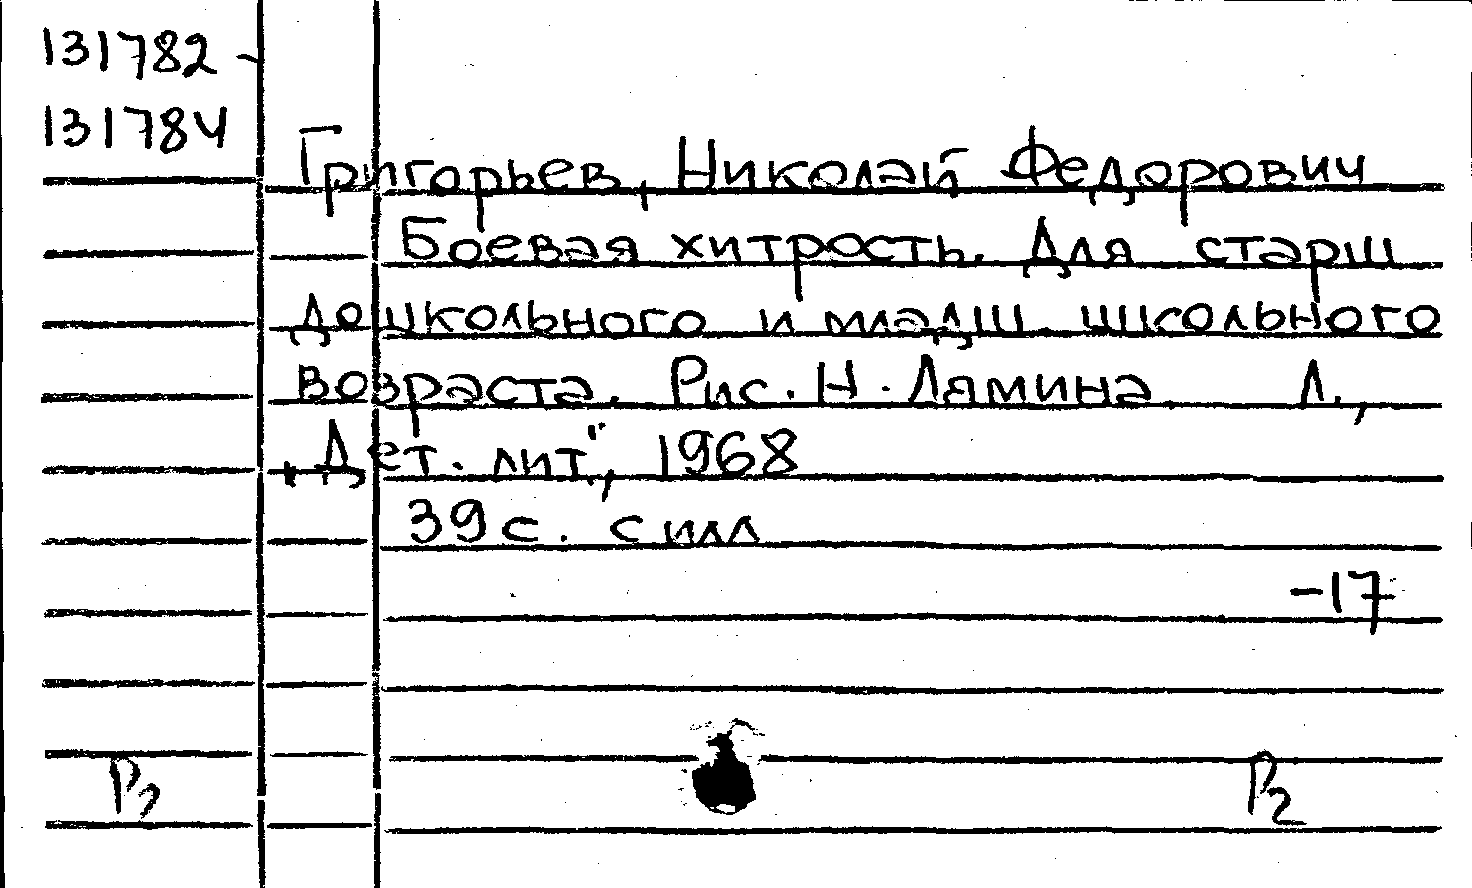 131782 -
131784
Григорьев, Николай Федорович
Боевая хитрость. Для старш
дошкольного и младш. школьного
возраста. Рис. Н. Лямина. Л.,
"Дет. лит", 1968
39 с. с илл
-17
Р2 Р2